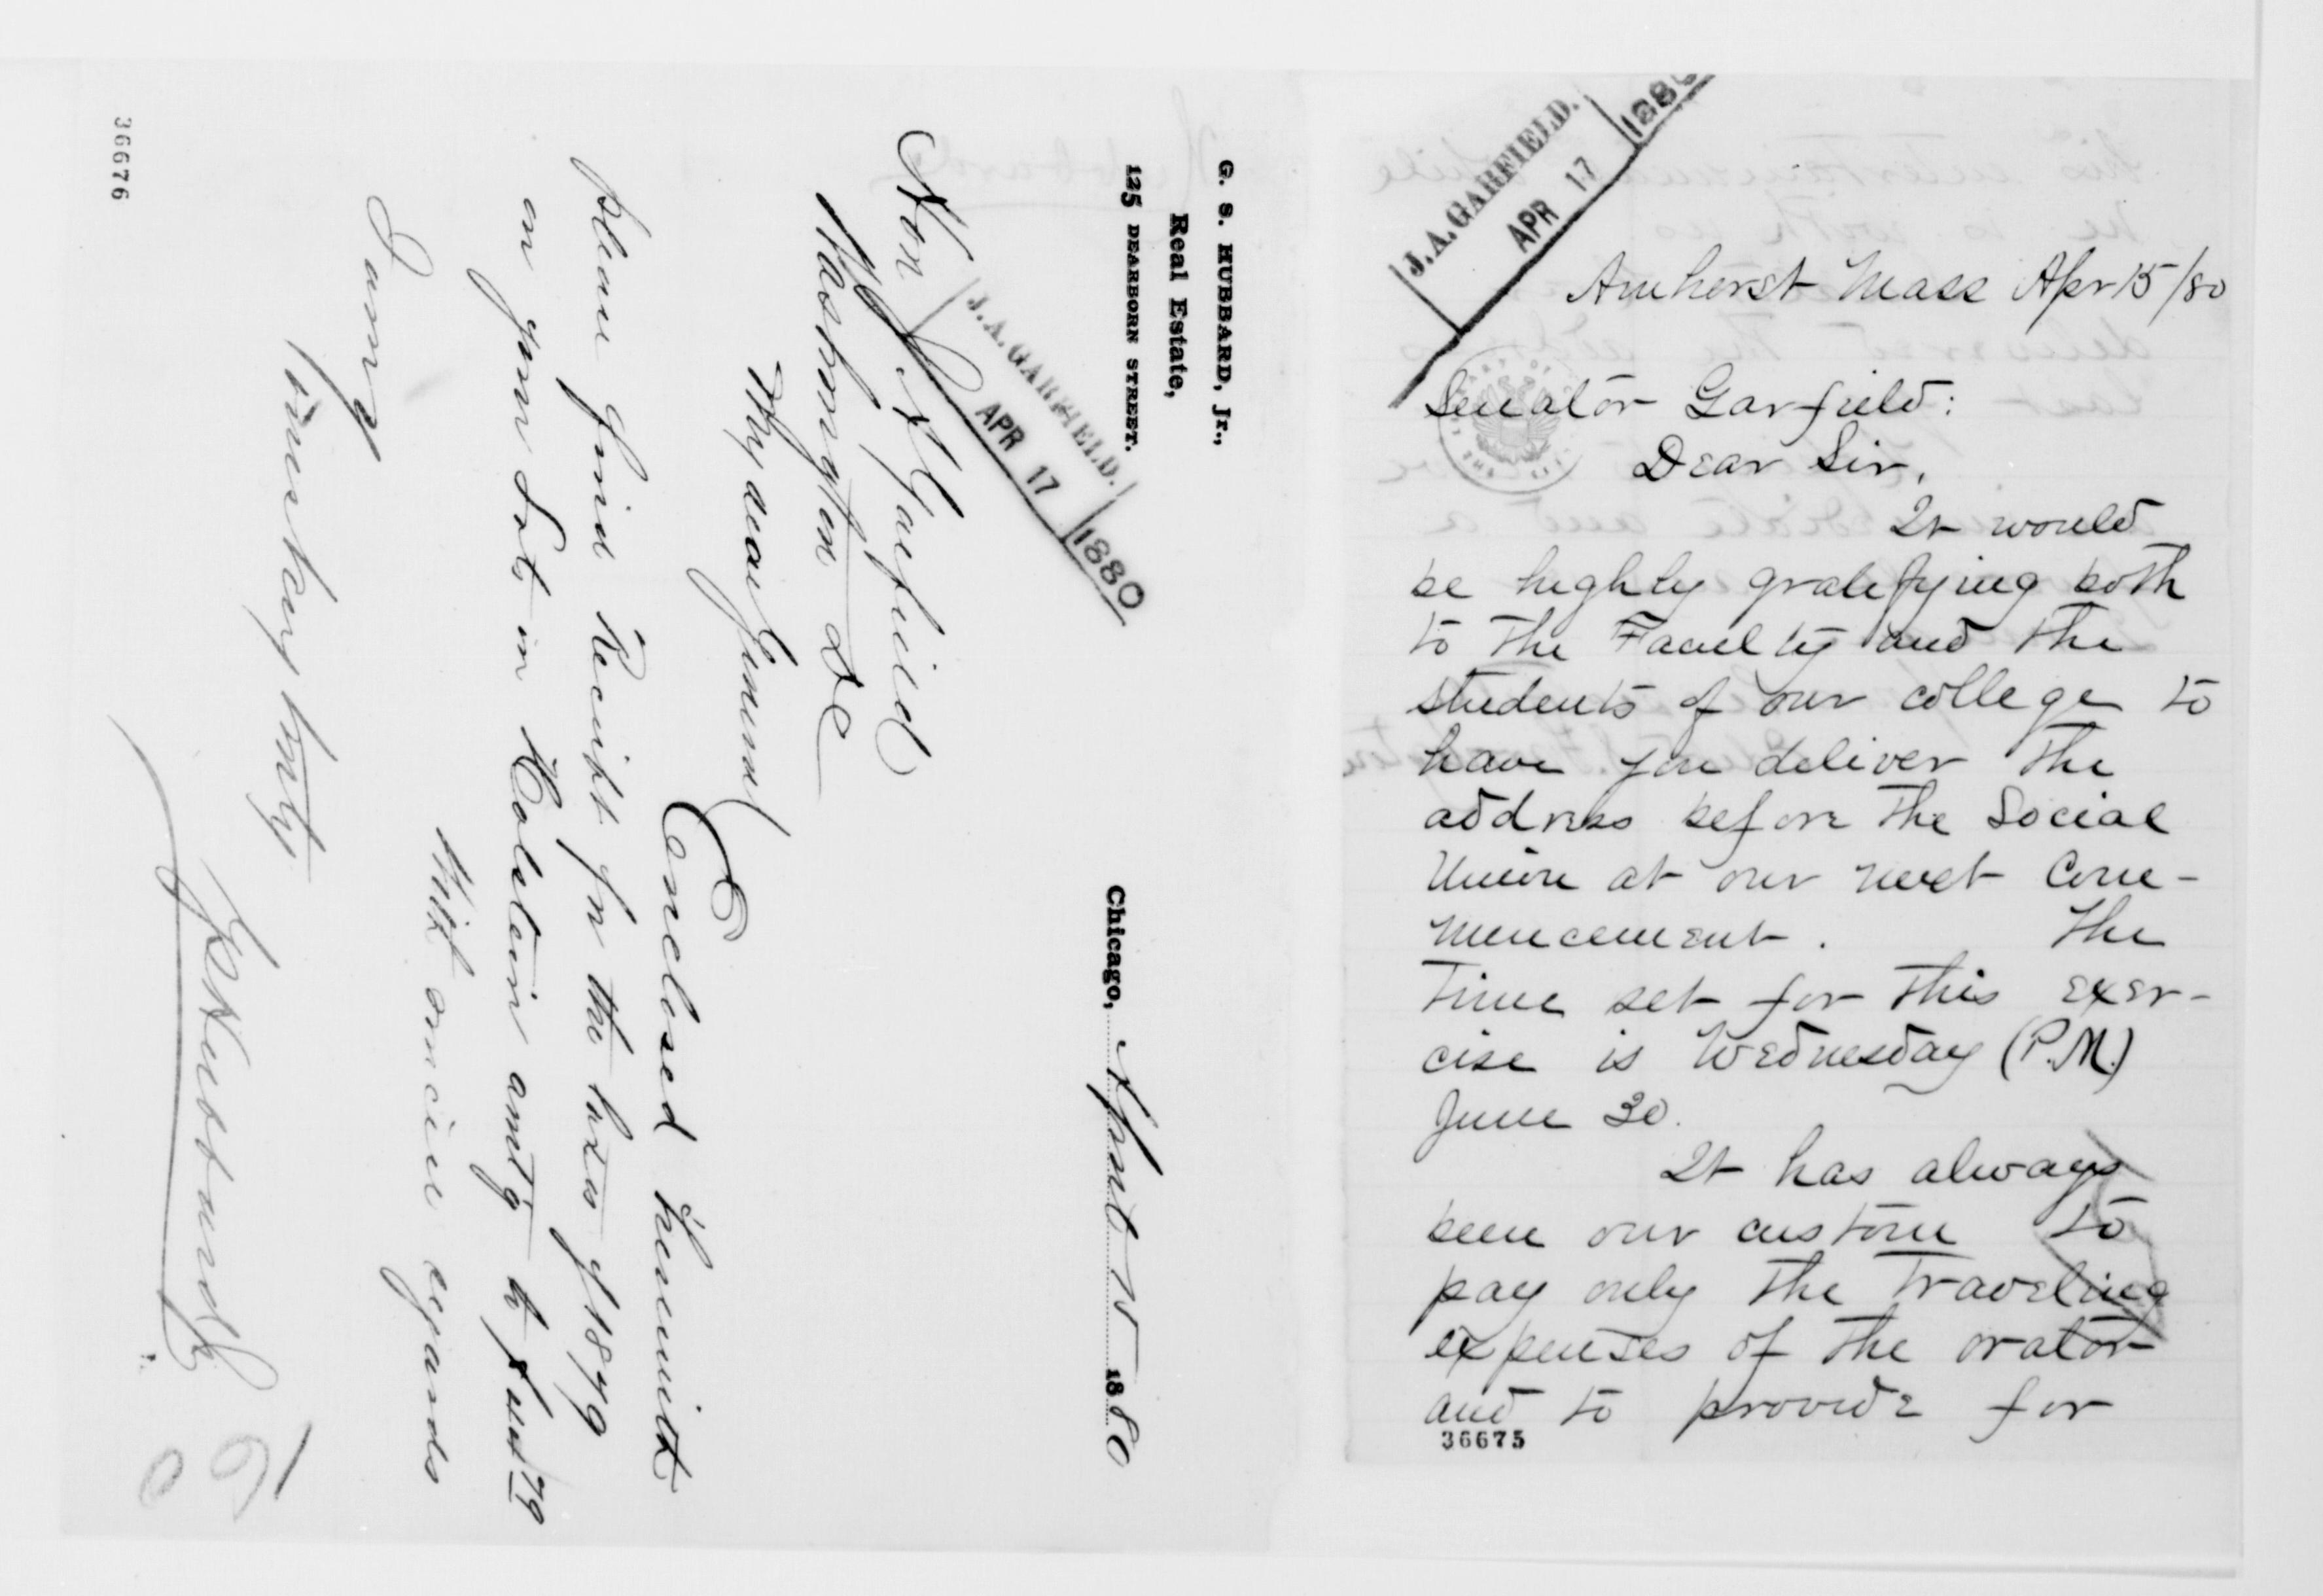 G. S. HUBBARD, Jr.,
Real Estate,
125 DEARBORN STREET.
Chicago, April 15 1880
J. A. GARFIELD.
APR 17 1880
Hon J A Garfield
Washington DC
My dear General
Enclosed herewith
please find Receipt for the taxes of 1879
on your Lot in Calolin amtg to $
With sincere regards
I am yr
very truly
G S Hubbard Jr
36676
J. A. GARFIELD.
APR 17 1880
Amherst Mass Apr 15/80
Senator Garfield:
Dear Sir,
It would
be highly gratifying both
to the Faculty and the
students of our college to
have you deliver the
address before the Social
Union at our next Com-
mencement. The
time set for this exer-
cise is Wednesday (P.M.)
June 30.
It has always
been our custom to
pay only the traveling
expenses of the orator
and to provide for
36675